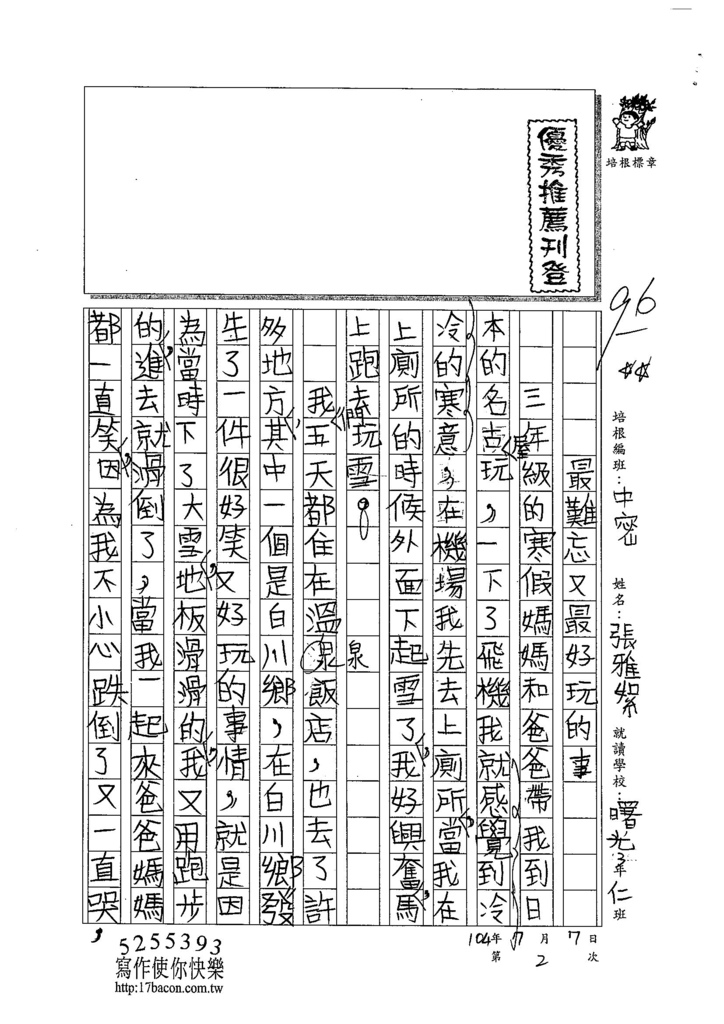 培根標章
優秀推薦刊登
96
培根編班：中密 姓名：張雅絜 就讀學校：曙光3年仁班
104年7月7日
第2次
最難忘又最好玩的事
三年級的寒假媽媽和爸爸帶我到日
本的名古屋玩，一下了飛機我就感覺到冷
冷的寒意，在機場我先去上廁所，當我在
上廁所的時候外面下起雪了，我好興奮，馬
上跑去玩雪。
我們五天都住在溫泉飯店，也去了許
多地方，其中一個是白川鄉，在白川鄉發
生了一件很好笑又好玩的事情，就是因
為當時下了大雪，地板滑滑的，我又用跑步
的，進去就滑倒了，當我一起來爸爸媽媽
都一直笑，因為我不小心跌倒了又一直哭，
5255393
寫作使你快樂
http:17bacon.com.tw